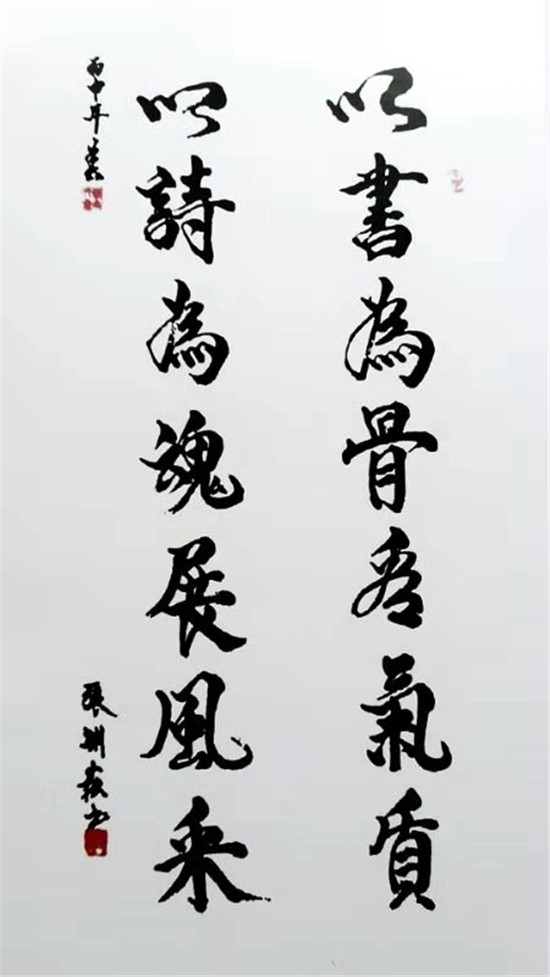 以書為骨氣質
以詩為魂展風采
丙申年
張